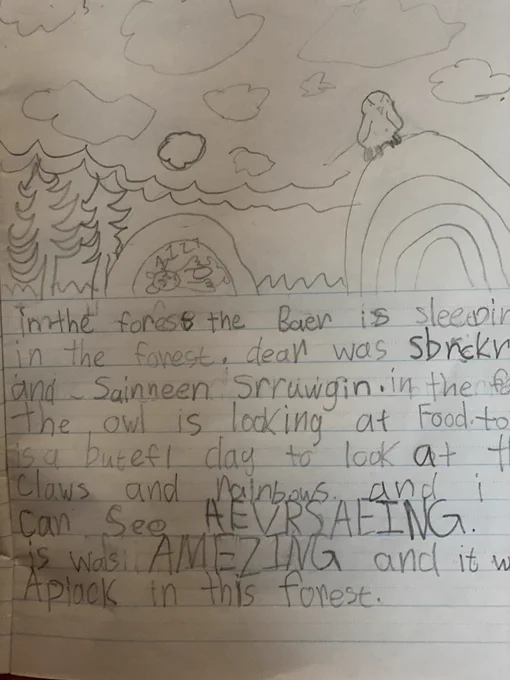 ZZZZ
in the forest the Baer is sleepin
in the forest. dear was sbrckr
and Sainneen Srruwigin. in the fe
The owl is looking at Food. to
is a butefl day to look at th
Claws and rainbows. and i
can see AEVRSAEING.
is wals AMEZING and it w
Aplack in this forest.